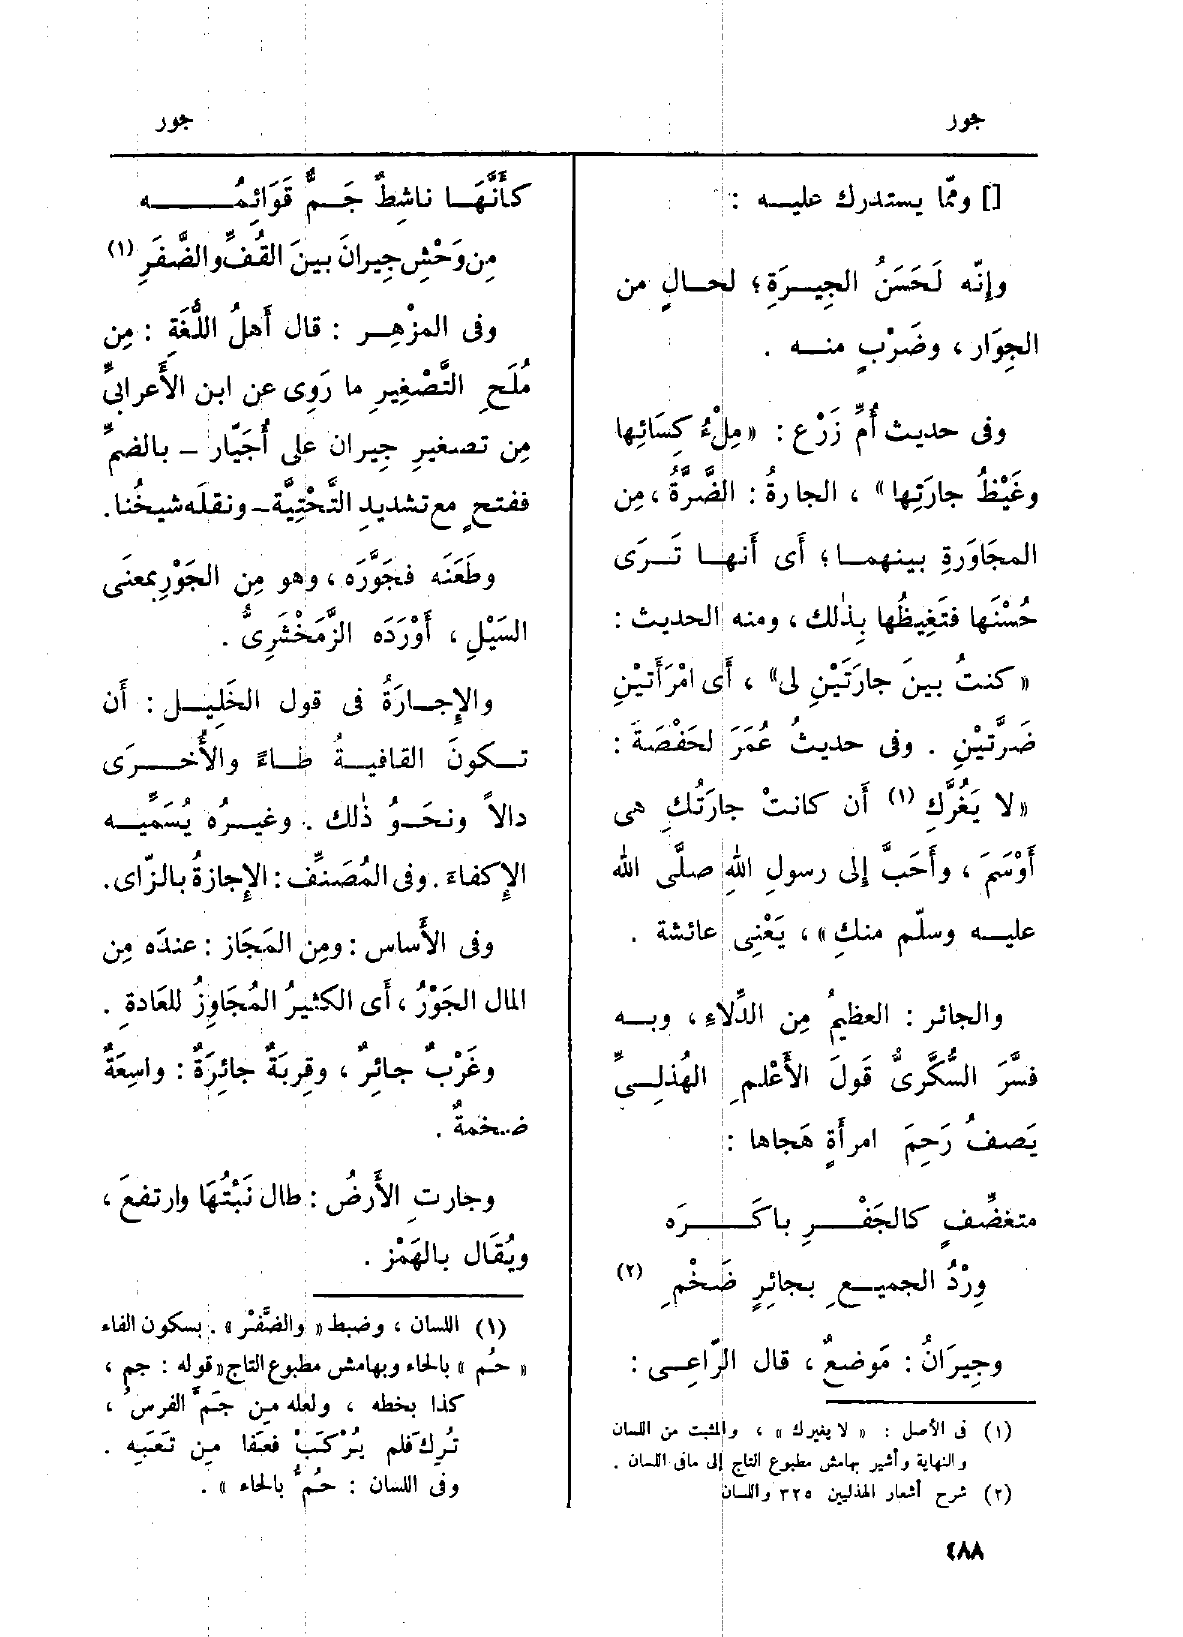 جور
جور
[] ومّا يستدرك عليه :
وإنّه لَحَسَنُ الجِيرَةِ؛ لحالٍ من
الجِوَار ، وضَرْبٍ منه .
وفى حديث أُمِّ زَرْع : « مِلْءُ كِسَائِها
وغَيْظُ جارَتِها » ، الجارةُ : الضَّرَّةُ ، مِن
المجَاوَرةِ بينهما ؛ أَى أَنها تَرَى
حُسْنَها فتَغِيظُها بِذٰلك ، ومنه الحديث :
« كنتُ بينَ جارَتَيْنِ لى » ، أَى امْرَأَتيْنِ
ضَرَّتيْنِ . وفى حديثُ عُمَرَ لحَفْصَةَ :
« لا يَغُرَّكِ (١) أَن كانتْ جارَتُكِ هى
أَوْسَمَ ، وأَحَبَّ إلى رسولِ اللهِ صلَّى اللهُ
عليه وسلّم منكِ » ، يَعْنِى عائشة .
والجائر : العظيمُ مِن الدِّلاءِ ، وبه
فسَّرَ السُّكَّرىُّ قَولَ الأَعْلمِ الهُذلىِّ
يَصفُ رَحِمَ امرأَةٍ هَجاها :
متغضِّفٍ كالجَفْرِ باكَرَه
وِرْدُ الجميعِ بجائرٍ ضَخْمِ (٢)
وجِيرَانُ : مَوضعٌ ، قال الرّاعِى :
(١) فى الأصل : « لا يغيرك » ، والمثبت من اللسان
والنهاية وأشير بهامش مطبوع التاج إلى مافى اللسان .
(٢) شرح أشعار الهذليين ٣٢٥ واللسان
كأَنَّهَا ناشِطٌ جَمٌّ قَوَائمُه
مِن وَحْشِ جِيرانَ بينَ القُفِّ والضَّفَرِ (١)
وفى المزْهِر : قال أَهلُ اللُّغَةِ : مِن
مُلَحِ التَّصْغِيرِ ما رَوِى عن ابن الأَعرابىِّ
مِن تصغيرِ جِيران على أُجَيّار – بالضمِّ
ففتحٍ مع تشديدِ التَّحْتِيَّة – ونقلَه شيخُنا .
وطَعَنَه فجَوَّرَه ، وهو مِن الجَوْرِ بمعنى
السَيْلِ ، أَوْرَدَه الزَّمَخْشَرِىُّ .
والإِجارَةُ فى قول الخَلِيل : أَن
تكونَ القافيةُ طاءً والأُخرَى
دالاً ونحَوُ ذٰلك . وغيرُه يُسَمَّيه
الإكفاءَ . وفى المُصَنِّف : الإِجازةُ بالزّاى .
وفى الأَساس : ومِن المَجَاز : عندَه مِن
المال الجَوْرُ ، أَى الكثيرُ المُجَاوِزُ للعَادةِ .
وغَرْبٌ جائرٌ ، وقِربَةٌ جائرَةٌ : واسِعَةٌ
ضخمةٌ .
وجارتِ الأَرضُ : طال نَبْتُهَا وارتفعَ ،
ويُقَال بالهَمْز .
(١) اللسان ، وضبط « والضَّفْر » . بسكون الفاء
« حُم » بالحاء وبهامش مطبوع التاج « قوله : جم ،
كذا بخطه ، ولعله من جَمَّ الفرسُ ،
تُرِك فلم يُرْكَبْ فعفا من تَعَبِه .
وفى اللسان : حُمٌّ بالحاء » .
٤٨٨